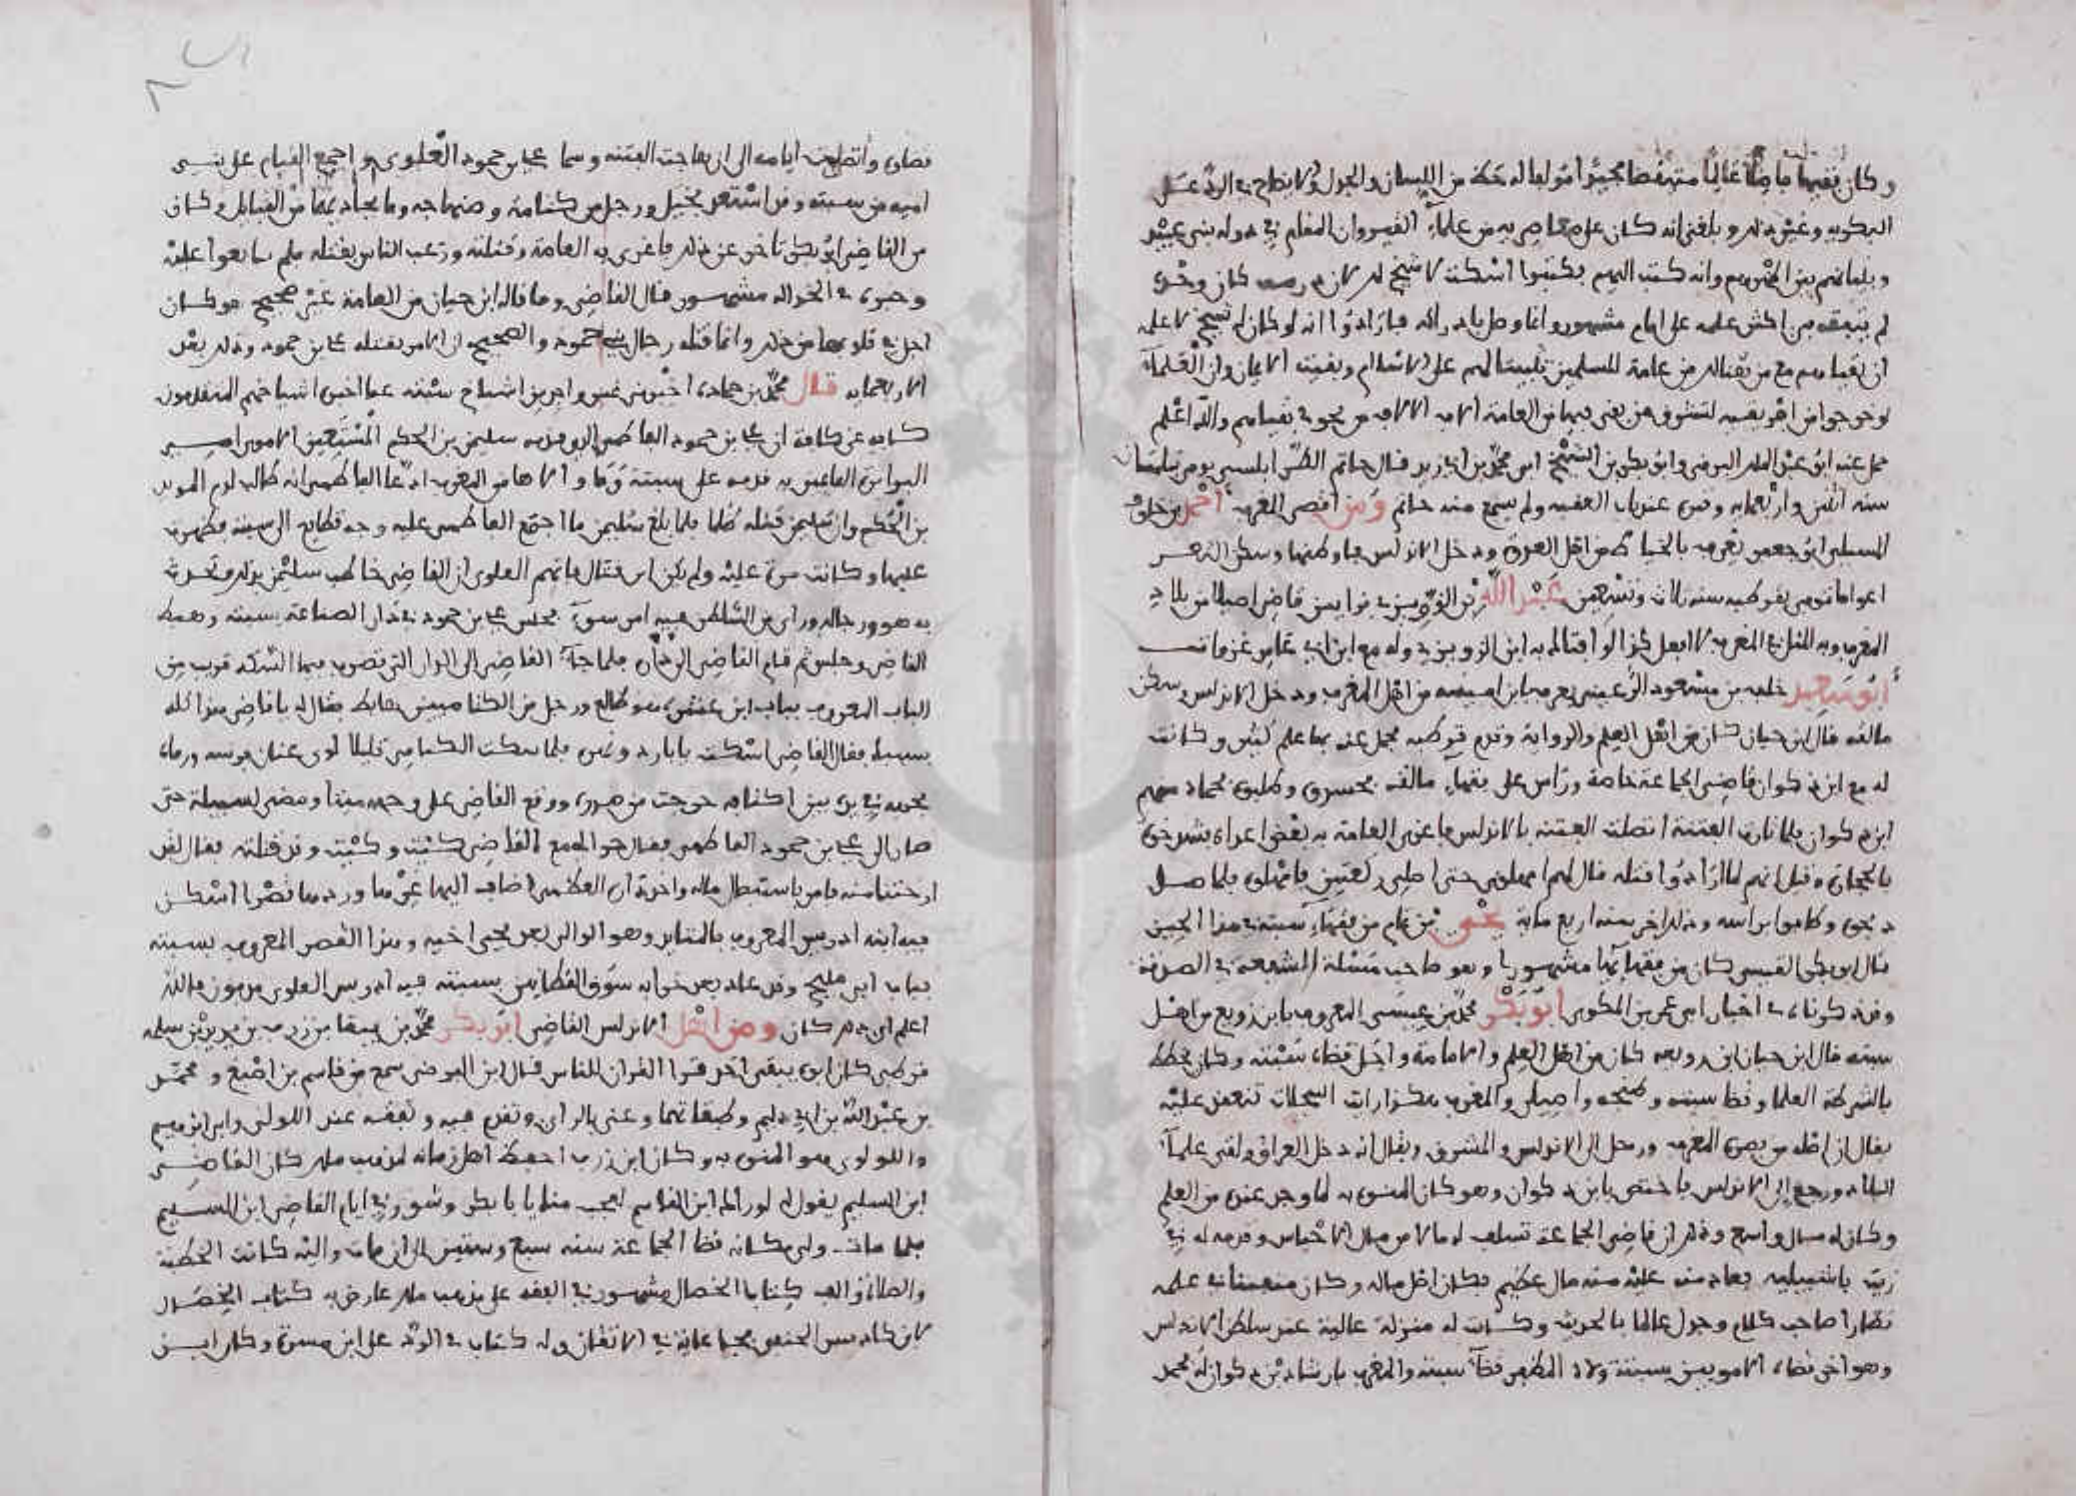 وكان فقيها فاضلا عالما متفننا مجيدا مؤلفا له حظ من اللسان والجدل
البكرية وغير ذلك وبلغني أنه كان على معاصريه من علماء القيروان المقام في دولة بني عبيد
وبقائهم بين أظهرهم وأنه كتب إليهم بكتبوا اسكت لا شيخ لك
لم يتفقه في أكثر علمه على إمام مشهور وإنما وصل بإدراكه فأرادوا أنه لو كان له شيخ لا علمه
أن بقاءهم مع من هنالك من عامة المسلمين تثبيتا لهم على الإسلام وبقية الإيمان وأن العلماء
لو خرجوا من افريقيه لتشرق من بقي فيها من العامة الالف الالاف فرجحوا بقاءهم والله أعلم
حمل عنه أبو عبد الملك البوني وأبو بكر بن الشيخ أبي محمد بن أبي زيد قال حاتم الطرابلسي توفي بتلمسان
سنة اثنين وأربعمائة وقبره عند باب العقبة ولم يسمع منه حاتم ومن أقصى المغرب أحمد بن خلوف
المسيلي أبو جعفر يعرف بالخياط من أهل العدوة ودخل الأندلس فاوطنها وسكن الثغر
أعواما توفي بقرطبه سنة ثلاث وتسعين عبد الله بن الزويزي
المغرب وبه المثل في المغرب لا أفعل كذا لو أفتاك به ابن الزويزي وله مع ابن أبي عامر غزوات
أبو سعيد خلف بن مسعود الرعيني يعرف بابن أمينه من أهل المغرب ودخل الأندلس وسكن
مالقه قال ابن حيان كان من أهل العلم والرواية وقدم قرطبه فحمل عنه بها علم كثير وكانت
له مع ابن ذكوان قاضي الجماعة خاصة ورأس على فقهاء مالقه فحسدوه وطلبوه
ابن ذكوان فلما نارت الفتنة اتصلت الفتنة بالأندلس فاغرى العامة به بعض اعداه
وقيل انهم لما أرادوا قتله قال لهم امهلوني حتى اصلي ركعتين فامهلوه فلما صلى
ذبحوه وطافوا براسه وذلك اخر سنة أربع مائة يحيى بن تمام من فقهاء سبتة في هذا الحين
قال ابو بكر القبسي كان من فقهائها مشهورا وهو صاحب مسئلة الشفعة في الصدقة
وقد ذكرناه في اخبار ابي عمر بن المكوي أبو بكر محمد بن عيسى المعروف بابن زوبع من أهل
سبته قال ابن حيان ابن زوبع كان من أهل العلم والإمامة وأجل قضاة سبتة وكان
بالشرطة العليا وقضا سبته وطنجه وأصيلى والمغرب السجلات تنعقد عليه
يقال ان اصله من بصرة المغرب ورحل إلى الأندلس والمشرق ويقال انه دخل العراق ولقي علماء
البلاد ورجع إلى الأندلس فاختص بابن ذكوان وهو كان المنوه به لما وجد عنده من العلم
وكان له مال واسع وذلك ان قاضي الجماعة تسلف له مالا من مال الأحباس وقدمه له في
زيت باشبيلية فعاد منه عليه منه مال عظيم فكان أصل ماله وكان متفننا في علمه
نظارا صاحب كلام وجدل عالما بالحديث وكانت له منزلة عالية عند سلطان الاندلس
وهو آخر قضاة الأمويين بسبتة ولاه المظفر قضاء سبته والمغرب بارشاد بن ذكوان له فحمد
قضاؤه واتصلت أيامه الى ان هاجت الفتنه وسما علي بن حمود العلوي واجمع القيام على بني
أميه من سبته وقد استظهر بخيل ورجل من كتامة وصنهاجه وما يحاديهما من القبائل وكان
من القاضي أبو بكر تاخر عن ذلك فاغرى به العامة وقتلته ورغب الناس بقتله فلم يتابعوا عليه
وخبره في الحوالة مشهور قال القاضي وما قاله ابن حيان من العامة غير صحيح هو كان
أجل في قلوبها من ذلك وإنما قتله رجال بني حمود والصحيح ان الامر بقتله علي بن حمود وذلك بعد
الاربعمائه قال محمد بن حمادة اخبرني غير واحد من اشياخ سبته عما اخبره اشياخهم المتقدمون
كافه عن كافة ان علي بن حمود الفاطمي الوفد به سليمن بن الحكم المستعين الاموي امير
البرابرة القائمين به قدمه على سبتة وما والاها من المغرب ادعا الفاطمي انه طالب لدم المويد
بن الحكم وان سليمن قتله ظلما فلما بلغ سليمن ما اجتمع الفاطمي عليه وجه قطايع الى سبتة فظهرت
عليها وكانت مرة عليه ولم يكن قتال فاتهم العلوي ان القاضي خاطب سليمن بذلك وتحدث
به هو ورجاله وراى من الشاطن فيه امر سوء فجلس علي بن حمود في دار الصناعة بسبته وهبط
القاضي وجلس ثم قام القاضي فلما جاء القاضي الى الدار التي تضرب فيها السكة قرب من
الباب المعروف بباب ابن وهو طالع ورجل من الكتاميين هابط فقال له يا قاضي هذا كله
بسببك فقال القاضي اسكت يا بارد ونهره فلما سكت الكتامي قليلا لوى عنان فرسه ورماه
بحربه في يده بين اكتافه خرجت من صدره ووقع القاضي على وجهه ميتا ومضى لسبيله حتى
صار الى علي بن حمود الفاطمي فقال جرا لي مع القاضي كيت وكيت وقد قتلته فقال لقد
ارحتنا منه فامر باستيصال ماله وأخذ دار العظمى اضاف اليها غيرها ورددها قصرا اسكن
فيه ابنه ادريس المعروف بالمتايد وهو الوالي بعد يحيى اخيه وهذا القصر المعروف بسبته
بباب ابي مليح وقد عاد بعد خرابه سوق القطانين بسبته فيه ادريس العلوي مدفون والله
أعلم أي ذلك كان ومن أهل الأندلس القاضي أبو بكر محمد بن يبقا بن زرب بن يزيد بن سلمه
قرطبي كان ابوه يبقى أخذ قرا القران للناس قال ابن الفرضي سمع من قاسم بن أصبغ ومحمد
بن عبد الله بن أبي دليم وطبقاتهما وعني بالراي وتقدم فيه وتفقه عند اللولي وابي ابراهيم
واللولوي هو المنوه به وكان ابن زرب احفظ اهل زمانه لمذهب ملك كان القاضي
ابن السليم يقول له لو راك ابن القاسم لعجب منك يا با بكر وشوور في ايام القاضي ابن السليم
فلما مات ولي مكانه قضا الجماعة سنة سبع وستين الى ان مات واليه كانت الخطبة
والصلاة والف كتاب الخصال مشهور في الفقه على مذهب ملك عارض به كتاب الخصال
لابن كادس الحنفي فجا غاية في الاتقان وله كتاب في الرد على ابن مسرة وكان ابن